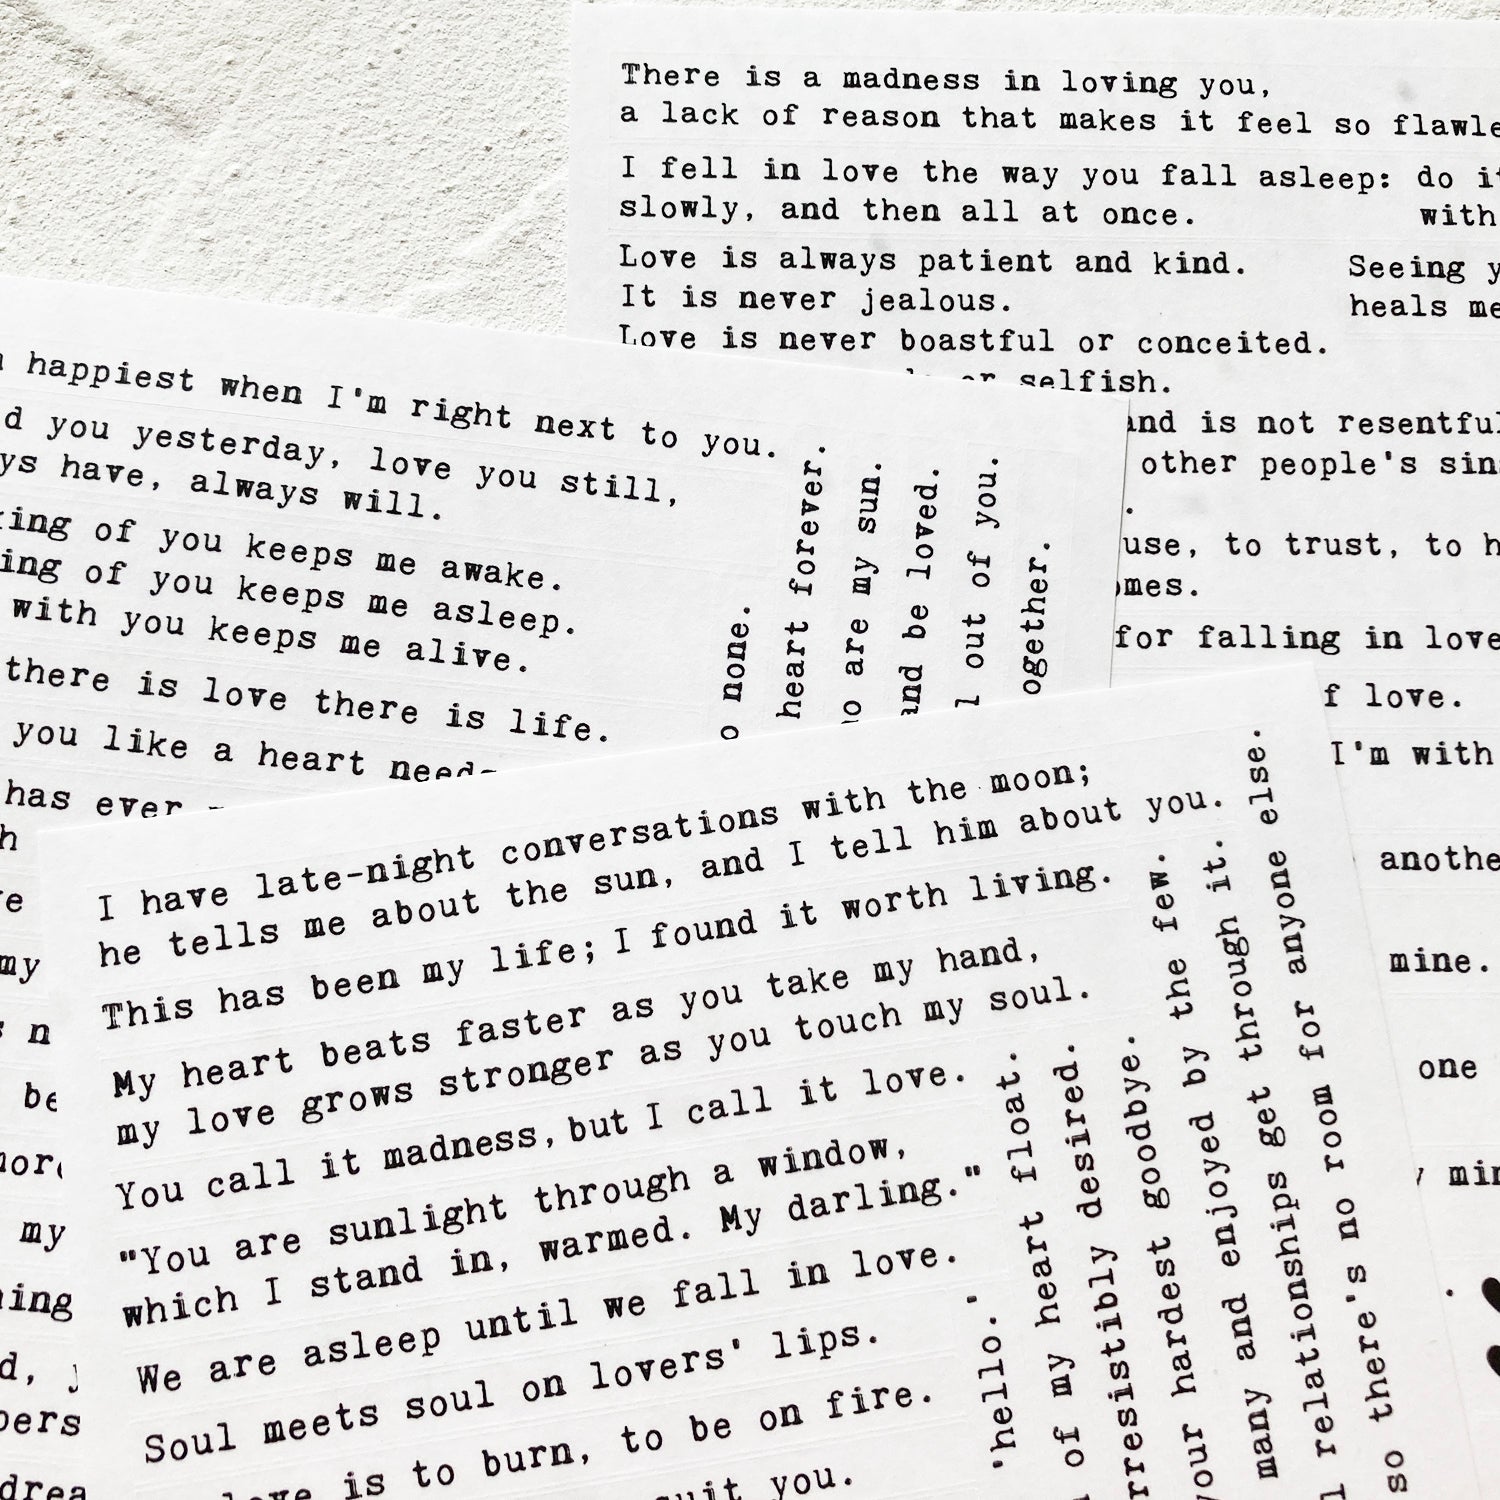 There is a madness in loving you,
a lack of reason that makes it feel so
I fell in love the way you fall asleep: do
slowly, and then all at once. with
Love is always patient and kind. Seeing
It is never jealous. heals
Love is never boastful or conceited.
or selfish.
and is not
other people's
to trust, to
for falling in love
love.
I'm with
mine.
one
happiest when I'm right next to you.
you yesterday, love you still,
have, always will.
of you keeps me awake.
of you keeps me asleep.
with you keeps me alive.
there is love there is life.
you like a heart
has ever
my
my
none.
heart forever.
are my sun.
and be loved.
out of you.
I have late-night conversations with the moon;
he tells me about the sun, and I tell him about you.
This has been my life; I found it worth living.
My heart beats faster as you take my hand,
my love grows stronger as you touch my soul.
You call it madness, but I call it love.
"You are sunlight through a window,
which I stand in, warmed. My darling."
We are asleep until we fall in love.
Soul meets soul on lovers' lips.
is to burn, to be on fire.
suit you.
'hello.'
heart float.
of my heart desired.
goodbye.
your hardest
many and enjoyed by the few.
relationships get through it.
so there's no room for anyone else.